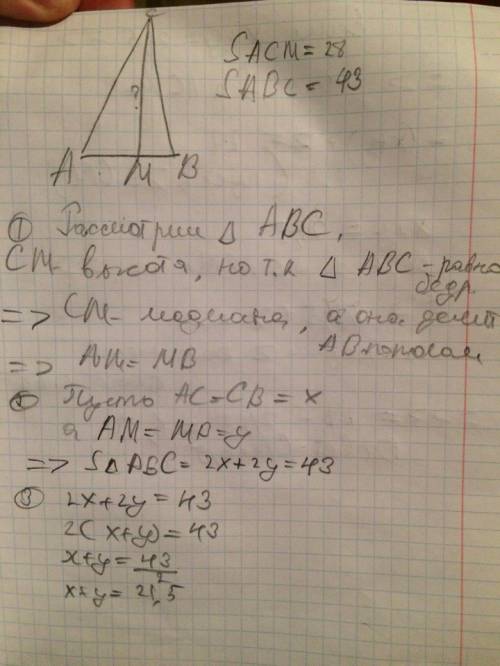 C
SACM = 28
SABC = 43
?
A M B
① Рассмотрим Δ ABC,
CM высота, но т.к Δ ABC - равно
бедр.
=> CM - медиана, а она делит
AB пополам
=> AM = MB
② Пусть AC = CB = x
а AM = MB = y
=> SΔABC = 2x + 2y = 43
③ 2x + 2y = 43
2(x+y) = 43
x+y = 43/2
x+y = 21,5